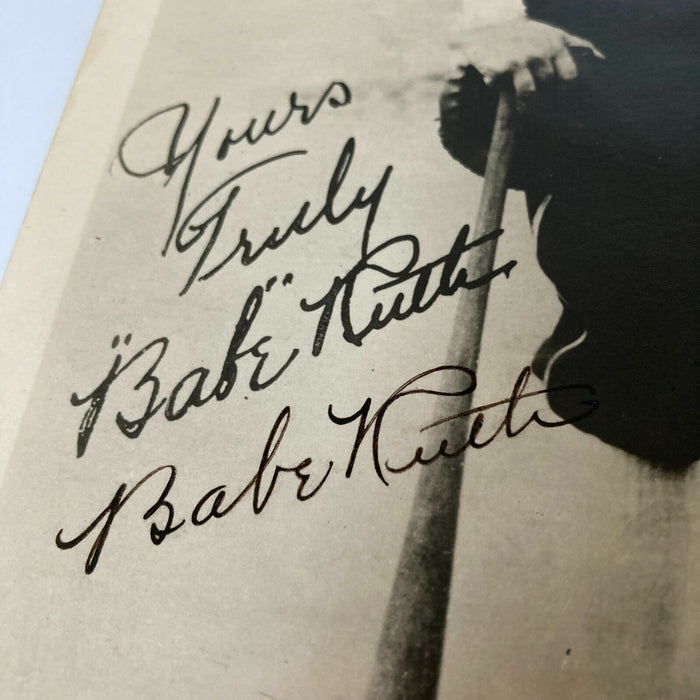 Yours
Truly
"Babe" Ruth
Babe Ruth